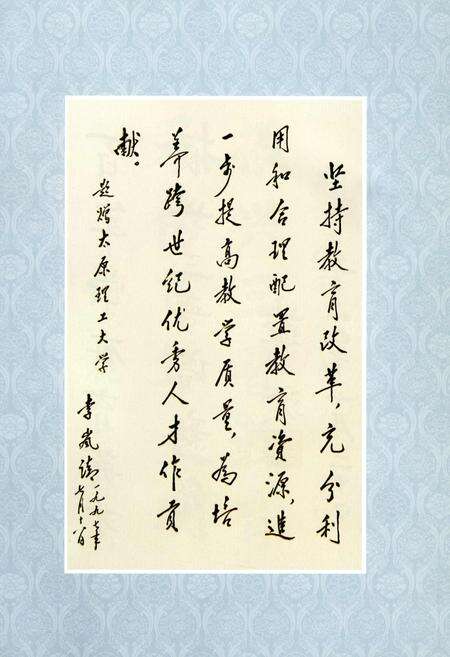 坚持教育改革，充分利
用和合理配置教育资源，進
一步提高教学质量，为培
养跨世纪优秀人才作贡
献。
题赠太原理工大学
李岚清
一九九七年
七月十一日